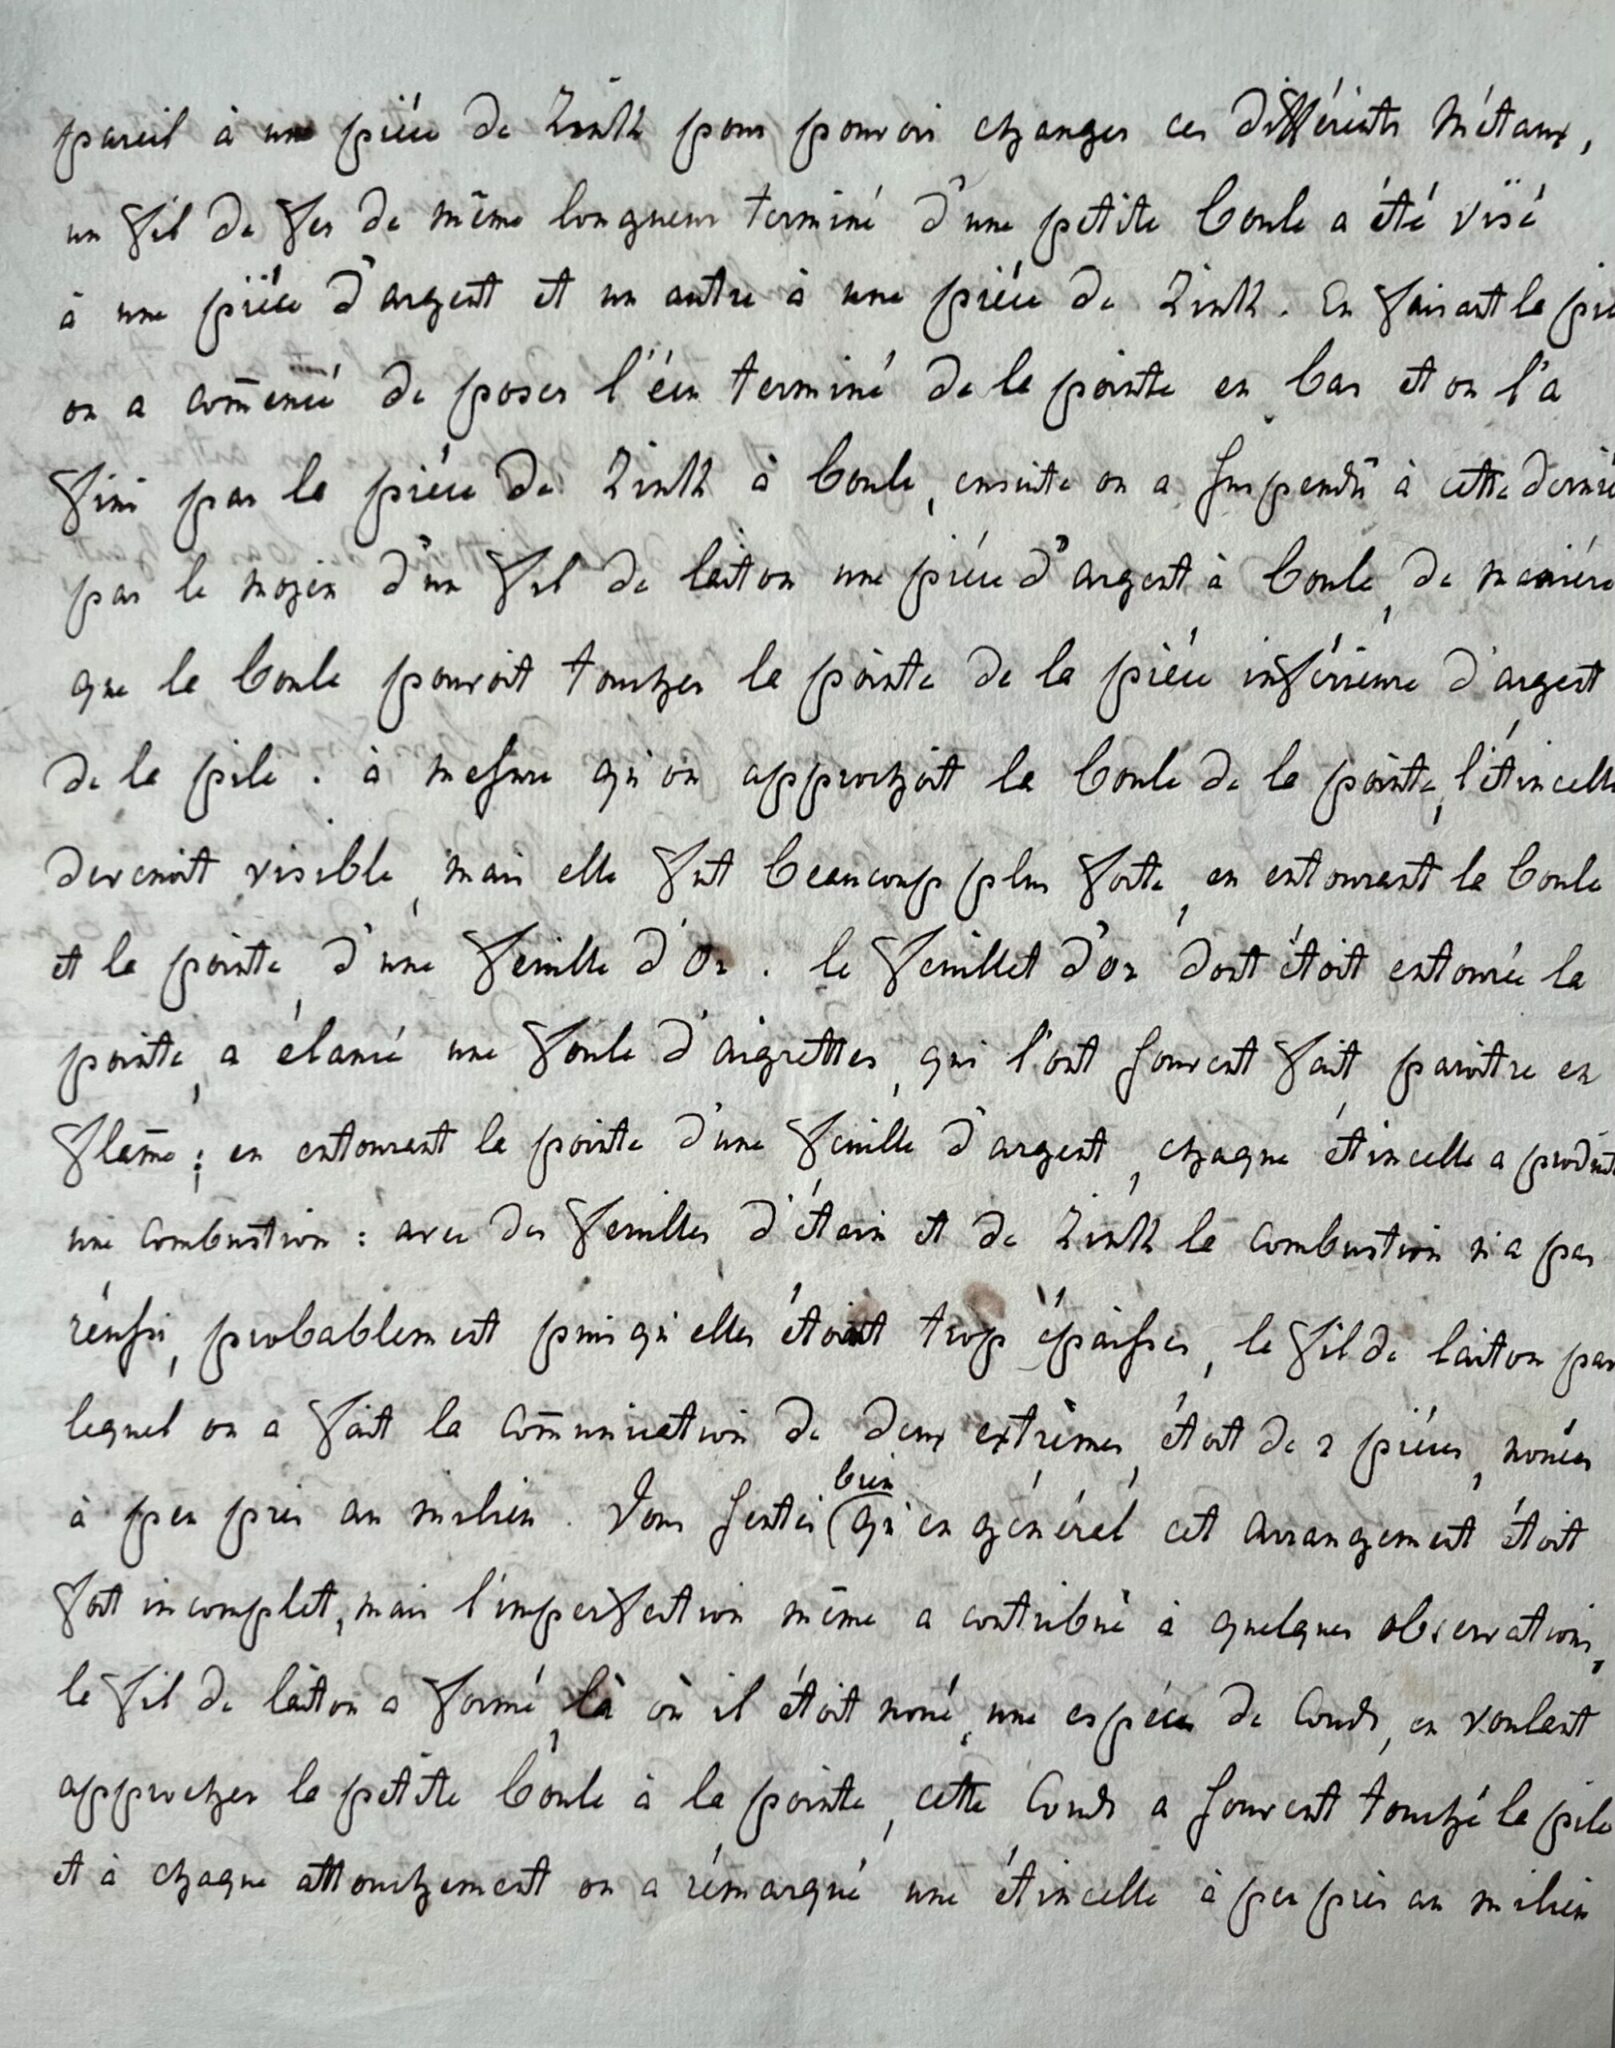 pareil à une piéce de Zink pour pouvoir changer ces différents Métaux,
un fil de fer de même longueur terminé d'une petite boule a été visé
à une piéce d'argent et un autre à une piéce de Zink. En faisant la pi
on a com̄encé de poser l'écu terminé de la pointe en bas et on l'a
fini par la piéce de Zink à boule, ensuite on a suspendu à cette derniè
par le moyen d'un fil de laiton une piéce d'argent à boule, de maniére
que la boule pouvoit toucher la pointe de la piéce inférieure d'argent
de la pile. à mesure qu'on approchoit la boule de la pointe, l'étincelle
devenoit visible, mais elle fut beaucoup plus forte, en entourant la boule
et la pointe d'une feuille d'Or. le feuillet d'or dont étoit entourée la
pointe, a élancé une foule d'aigrettes, qui l'ont souvent fait paroître en
flam̄e; en entourant la pointe d'une feuille d'argent, chaque étincelle a produit
une combustion: avec des feuilles d'étain et de Zink la combustion n'a pas
réussi, probablement puisqu'elles étoient trop épaisses, le fil de laiton par
lequel on a fait la com̄unication de deux extrèmes, étoit de 2 piéces, nouées
à peu près au milieu. Vous sentés bien qu'en général cet arrangement étoit
fort incomplet, mais l'imperfection même a contribué à quelques observations,
le fil de laiton a formé, là où il étoit noué, une espéce de Coude, en voulant
approcher la petite boule à la pointe, cette Coude a souvent touché la pile
et à chaque attouchement on a rémarqué une étincelle à peu près au milieu